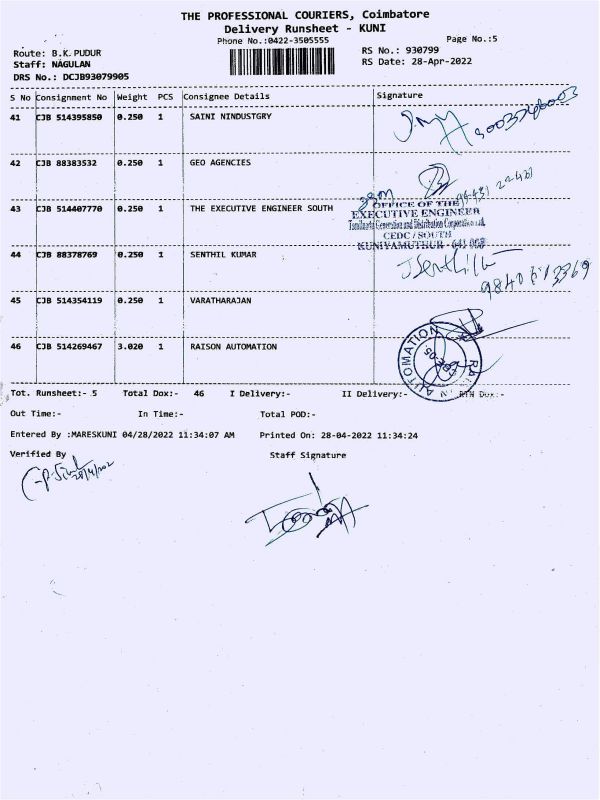 THE PROFESSIONAL COURIERS, Coimbatore
Delivery Runsheet - KUNI
Phone No.:0422-3505555
Page No.:5
Route: B.K.PUDUR
RS No.: 930799
Staff: NAGULAN
RS Date: 28-Apr-2022
DRS No.: DCJB93079905
S No Consignment No Weight PCS Consignee Details Signature
41 CJB 514395850 0.250 1 SAINI NINDUSTGRY
42 CJB 88383532 0.250 1 GEO AGENCIES
43 CJB 514407770 0.250 1 THE EXECUTIVE ENGINEER SOUTH
OFFICE OF THE
EXECUTIVE ENGINEER
Tamilnadu Generation and Distribution Corporation Ltd.
CEDC / SOUTH
KUNIYAMUTHUR - 641 008
44 CJB 88378769 0.250 1 SENTHIL KUMAR
45 CJB 514354119 0.250 1 VARATHARAJAN
46 CJB 514269467 3.020 1 RAISON AUTOMATION
AUTOMATION
Tot. Runsheet:- 5 Total Dox:- 46 I Delivery:- II Delivery:- RTN Dox:-
Out Time:- In Time:- Total POD:-
Entered By :MARESKUNI 04/28/2022 11:34:07 AM Printed On: 28-04-2022 11:34:24
Verified By Staff Signature